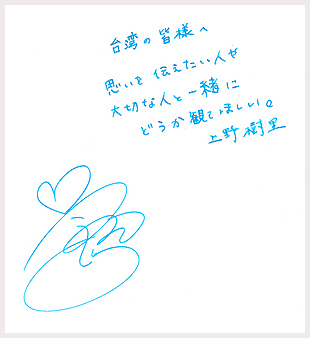 台湾の皆様へ
思いを伝えたい人や
大切な人と一緒に
どうか観てほしい。
上野樹里